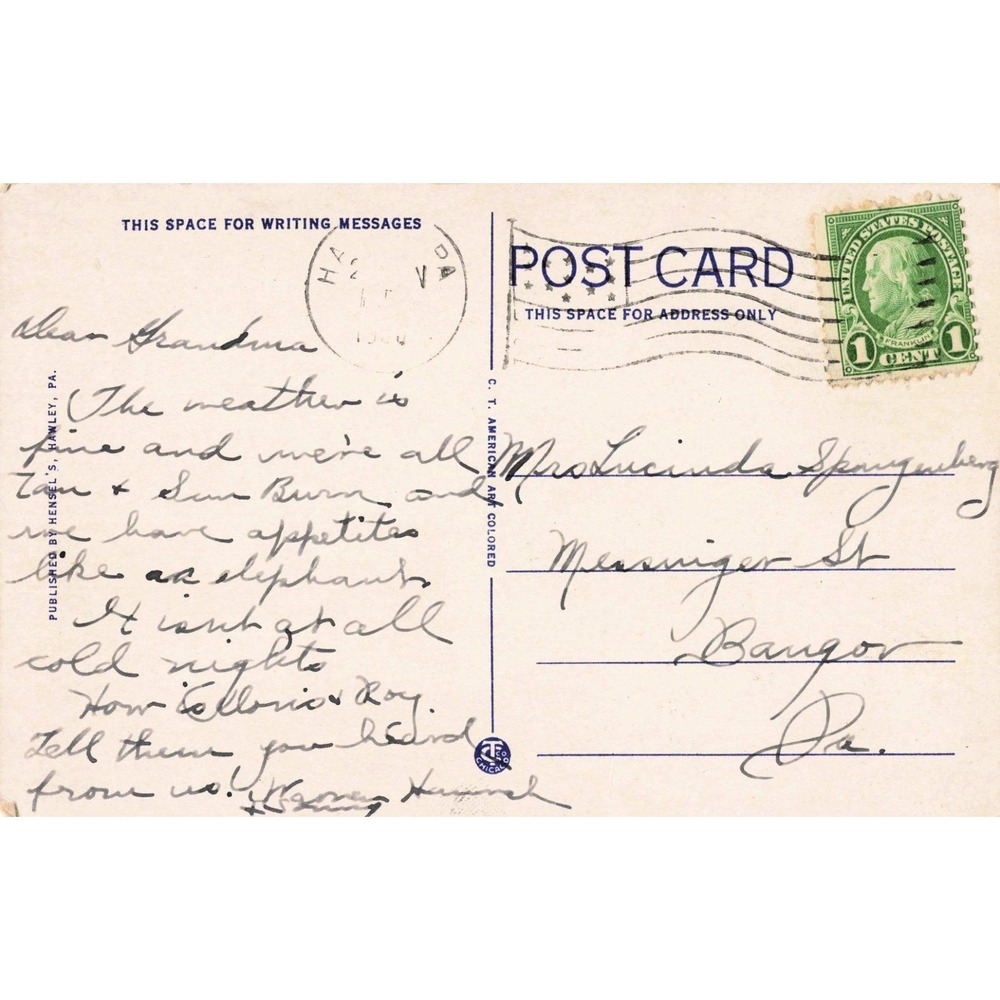 THIS SPACE FOR WRITING MESSAGES
Dear Grandma
The weather is
fine and we're all
Tan & Sun Burn and
we have appetites
like an elephant.
It isn't at all
cold nights
How is & Roy.
Tell them you heard
from us!
PUBLISHED BY HENSEL'S, HAWLEY, PA.
C. T. AMERICAN ART COLORED
CHICAGO
HA PA
POST CARD
THIS SPACE FOR ADDRESS ONLY
UNITED STATES POSTAGE
FRANKLIN
1 CENT 1
Mrs Lucinda Spangenberg
Messinger St
Bangor
Pa.